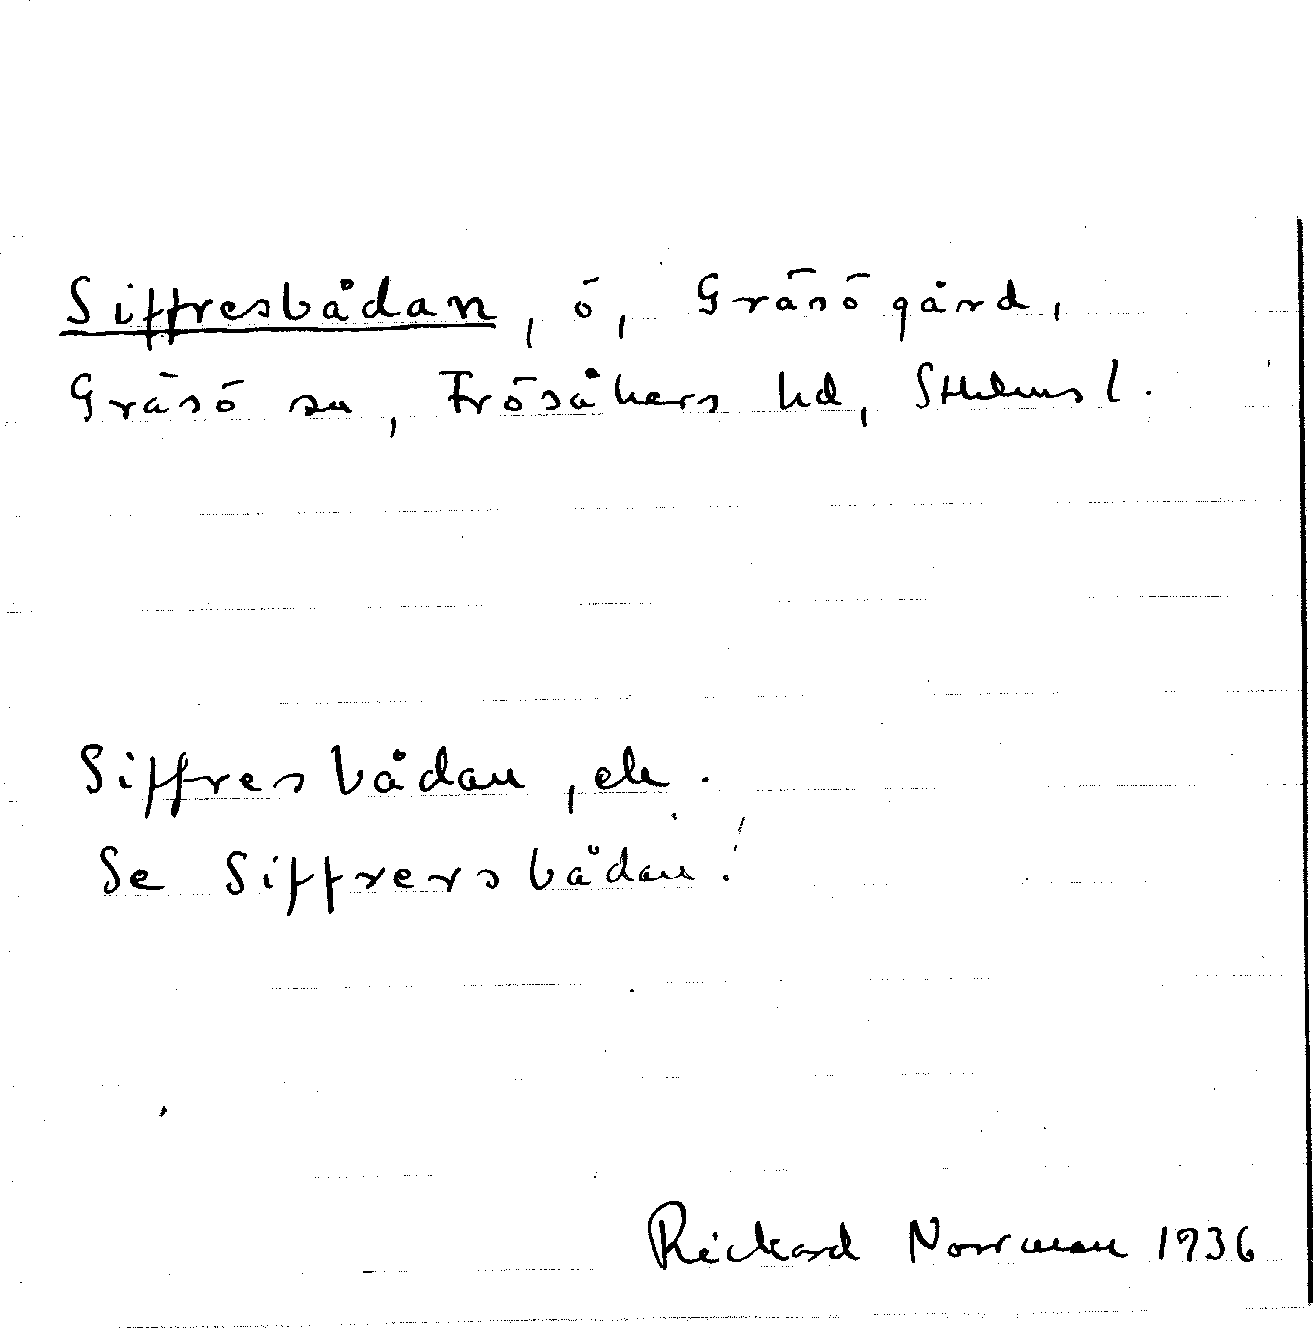 Siffresbådan, ö, Gräsö gård,
Gräsö sn, Frösåkers hd, Sthlms l.
Siffresbådan, ek.
Se Siffrersbådan!
Rickard Norrman 1936